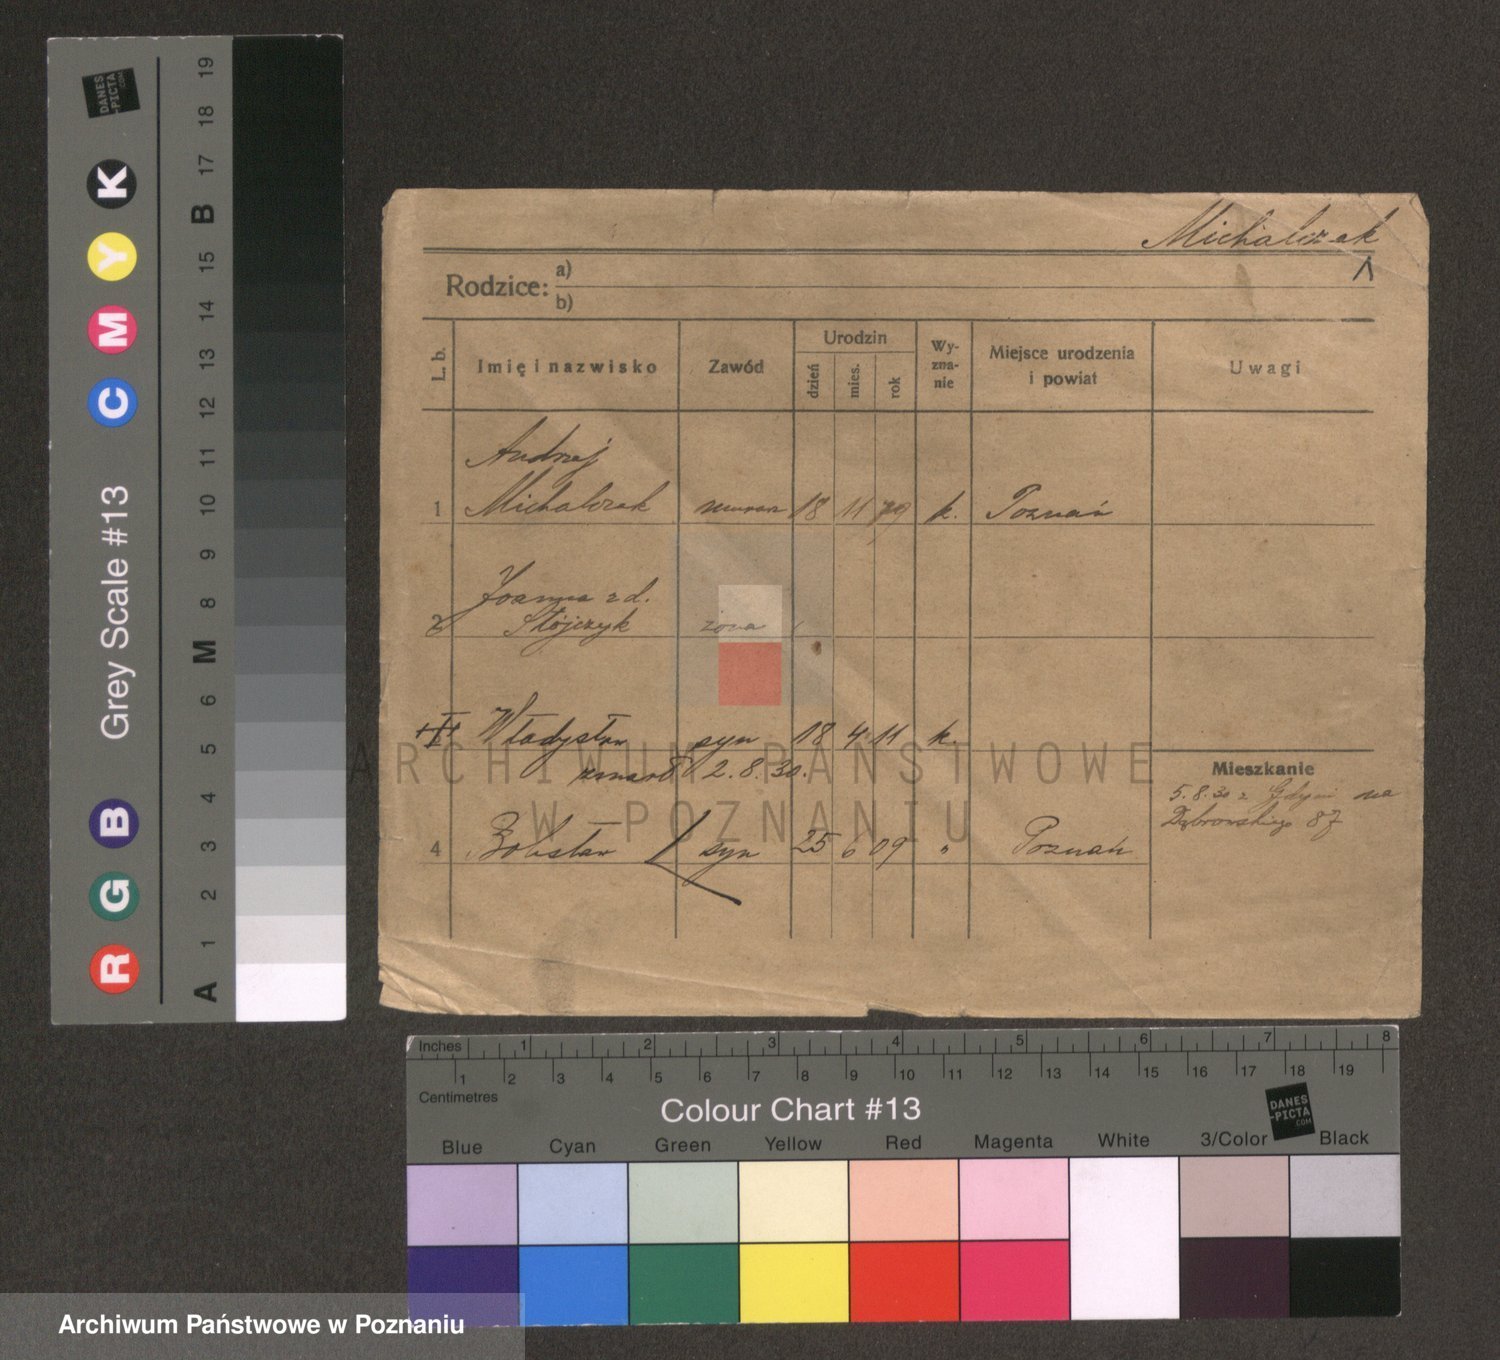 Michalczak
Rodzice: a)
b)
L. b.
Imię i nazwisko
Zawód
Urodzin
dzień
mies.
rok
Wy-
zna-
nie
Miejsce urodzenia
i powiat
Uwagi
Andrzej
1 Michalczak murarz 18 11 79 k. Poznań
Joanna z d.
2 Stójczyk żona
Władysław syn 18 4 11 k.
zmarł 2.8.30.
Mieszkanie
5.8.30 z Gdyni na
Dąbrowskiego 87
4 Bolesław syn 25 6 09 " Poznań
ARCHIWUM PAŃSTWOWE
W POZNANIU
DANES
-PICTA
.COM
K Y M C B G R
Grey Scale #13
A 1 2 3 4 5 6 M 8 9 10 11 12 13 14 15 B 17 18 19
Inches 1 2 3 4 5 6 7 8
1 2 3 4 5 6 7 8 9 10 11 12 13 14 15 16 17 18 19
Centimetres
Colour Chart #13
DANES
-PICTA
.COM
Blue Cyan Green Yellow Red Magenta White 3/Color Black
Archiwum Państwowe w Poznaniu